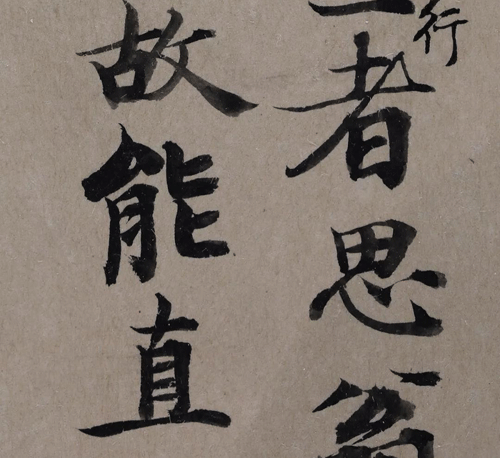 行
者思
故能直